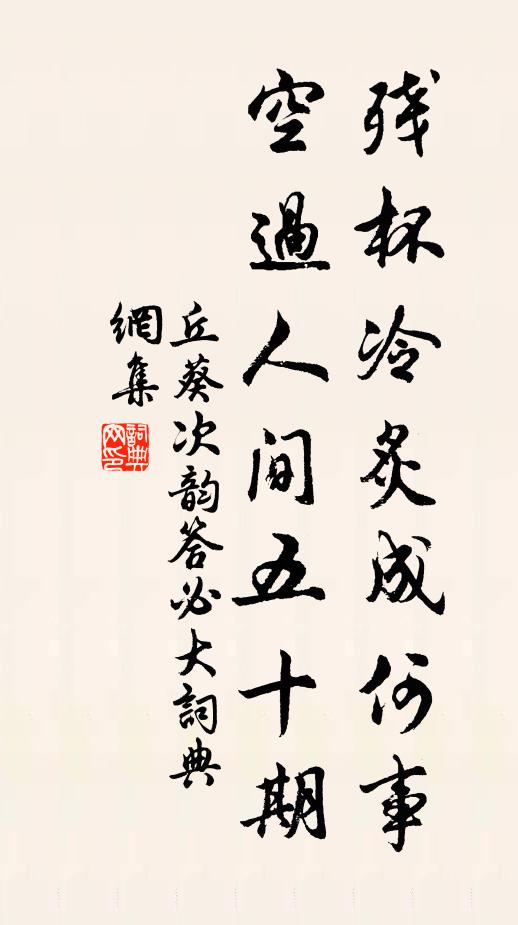 残杯冷炙成何事
空過人间五十期
丘葵次韵答必大詞典
網集
詞典
网印